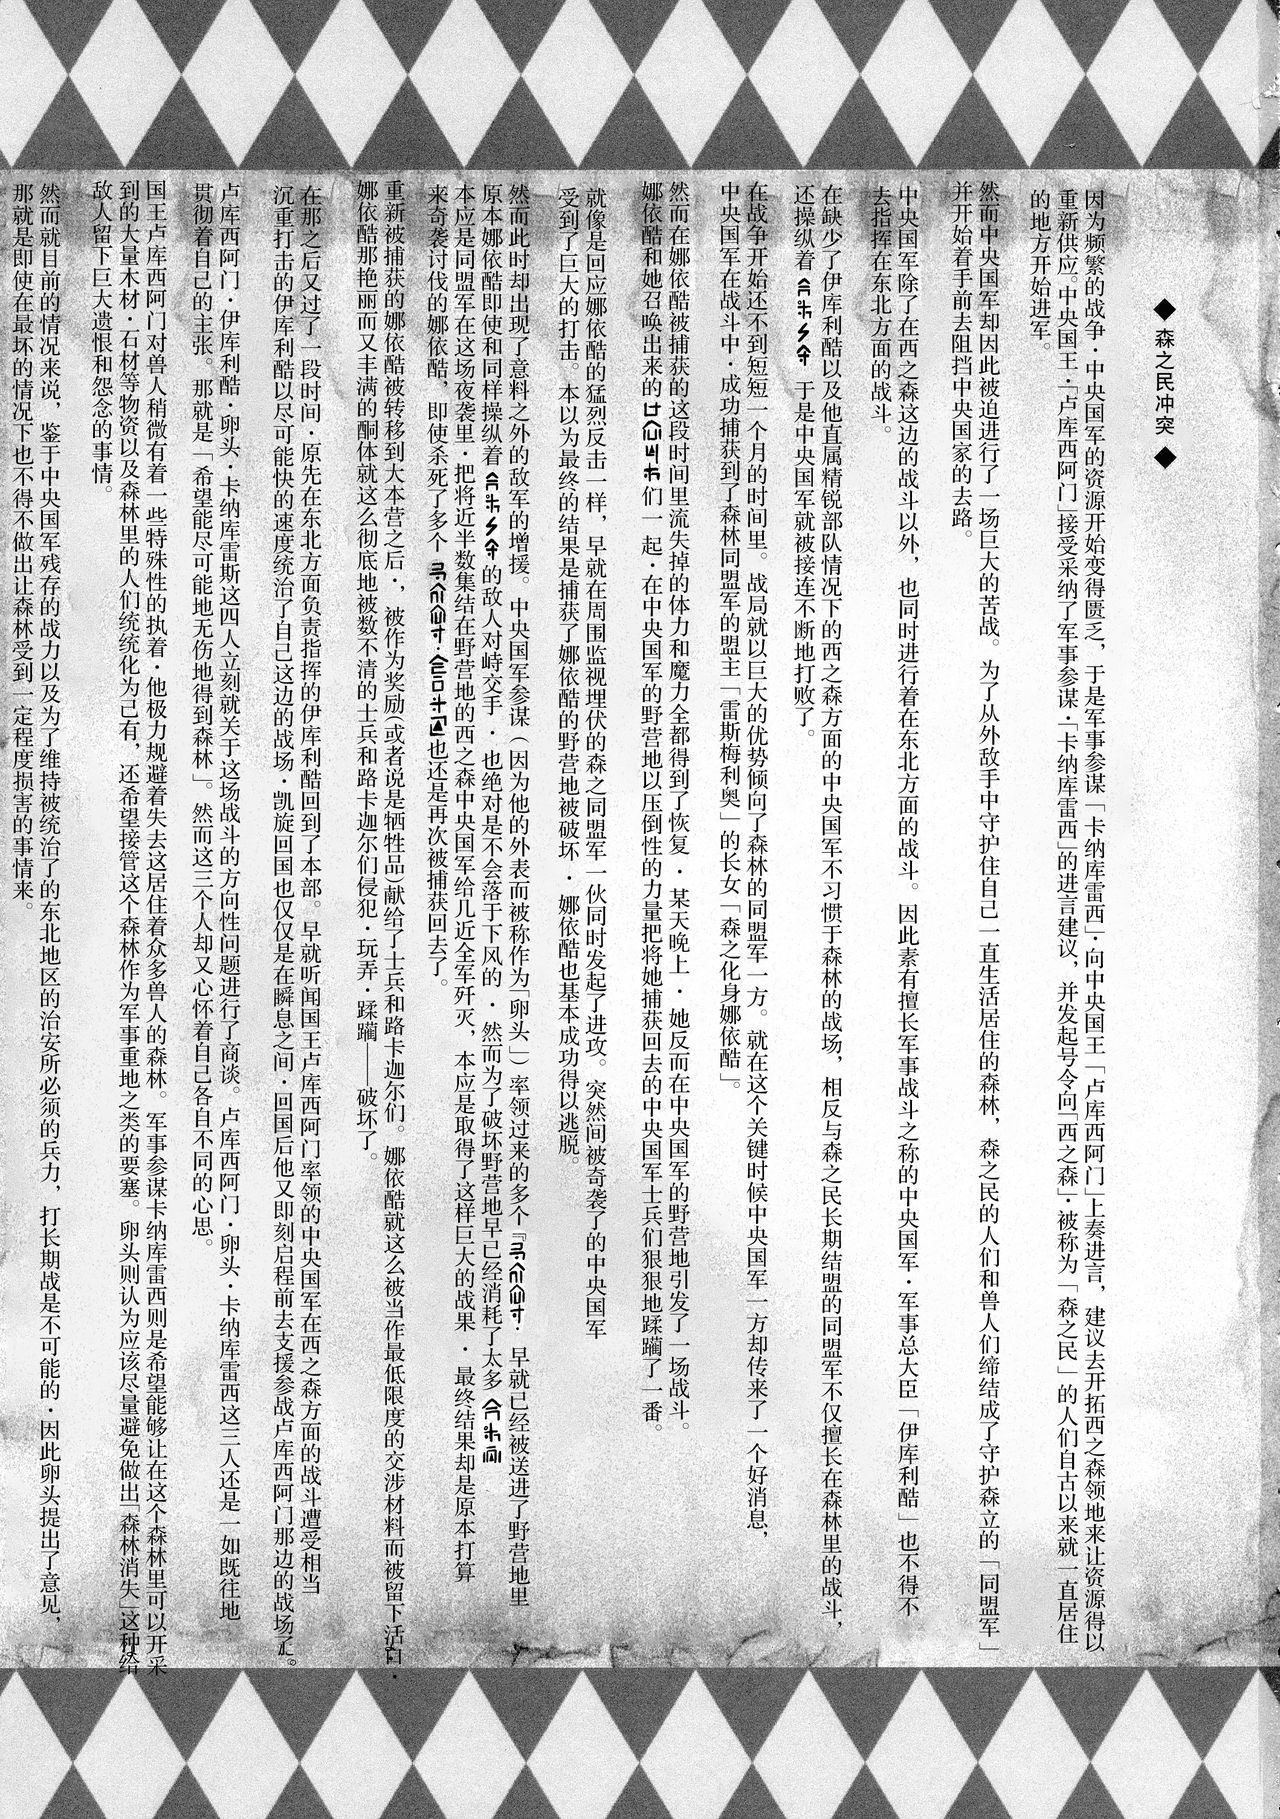 ◆ 森之民冲突 ◆
因为频繁的战争·中央国军的资源开始变得匮乏，于是军事参谋「卡纳库雷西」·向中央国王「卢库西阿门」上奏进言，建议去开拓西之森领地来让资源得以
重新供应。中央国王·「卢库西阿门」接受采纳了军事参谋·「卡纳库雷西」的进言建议，并发起号令向「西之森」·被称为「森之民」的人们自古以来就一直居住
的地方开始进军。
然而中央国军却因此被迫进行了一场巨大的苦战。为了从外敌手中守护住自己一直生活居住的森林，森之民的人们和兽人们缔结成了守护森立的「同盟军」
并开始着手前去阻挡中央国家的去路。
中央国军除了在西之森这边的战斗以外，也同时进行着在东北方面的战斗。因此素有擅长军事战斗之称的中央国军·军事总大臣「伊库利酷」也不得不
去指挥在东北方面的战斗。
在缺少了伊库利酷以及他直属精锐部队情况下的西之森方面的中央国军不习惯于森林的战场，相反与森之民长期结盟的同盟军不仅擅长在森林里的战斗，
还操纵着 于是中央国军就被接连不断地打败了。
在战争开始还不到短短一个月的时间里。战局就以巨大的优势倾向了森林的同盟军一方。就在这个关键时候中央国军一方却传来了一个好消息，
中央国军在战斗中·成功捕获到了森林同盟军的盟主「雷斯梅利奥」的长女「森之化身娜依酷」。
然而在娜依酷被捕获的这段时间里流失掉的体力和魔力全都得到了恢复·某天晚上·她反而在中央国军的野营地引发了一场战斗。
娜依酷和她召唤出来的 们一起·在中央国军的野营地以压倒性的力量把将她捕获回去的中央国军士兵们狠狠地蹂躏了一番。
就像是回应娜依酷的猛烈反击一样，早就在周围监视埋伏的森之同盟军一伙同时发起了进攻。突然间被奇袭了的中央国军
受到了巨大的打击。本以为最终的结果是捕获了娜依酷的野营地被破坏·娜依酷也基本成功得以逃脱。
然而此时却出现了意料之外的敌军的增援。中央国军参谋（因为他的外表而被称作为「卵头」）率领过来的多个『 · 早就已经被送进了野营地里
原本娜依酷即使和同样操纵着 的敌人对峙交手·也绝对是不会落于下风的·然而为了破坏野营地早已经消耗了太多
本应是同盟军在这场夜袭里·把将近半数集结在野营地的西之森中央国军给几近全军歼灭，本应是取得了这样巨大的战果·最终结果却是原本打算
来奇袭讨伐的娜依酷，即使杀死了多个 · 也还是再次被捕获回去了。
重新被捕获的娜依酷被转移到大本营之后·，被作为奖励（或者说是牺牲品）献给了士兵和路卡迦尔们。娜依酷就这么被当作最低限度的交涉材料而被留下活口·
娜依酷那艳丽而又丰满的酮体就这么彻底地被数不清的士兵和路卡迦尔们侵犯·玩弄·蹂躏——破坏了。
在那之后又过了一段时间·原先在东北方面负责指挥的伊库利酷回到了本部。早就听闻国王卢库西阿门率领的中央国军在西之森方面的战斗遭受相当
沉重打击的伊库利酷以尽可能快的速度统治了自己这边的战场·凯旋回国也仅仅是在瞬息之间·回国后他又即刻启程前去支援参战卢库西阿门那边的战场了。
卢库西阿门·伊库利酷·卵头·卡纳库雷斯这四人立刻就关于这场战斗的方向性问题进行了商谈。卢库西阿门·卵头·卡纳库雷西这三人还是一如既往地
贯彻着自己的主张。那就是「希望能尽可能地无伤地得到森林」。然而这三个人却又心怀着自己各自不同的心思。
国王卢库西阿门对兽人稍微有着一些特殊性的执着·他极力规避着失去这居住着众多兽人的森林。军事参谋卡纳库雷西则是希望能够让在这个森林里可以开采
到的大量木材·石材等物资以及森林里的人们统统化为己有，还希望接管这个森林作为军事重地之类的要塞。卵头则认为应该尽量避免做出「森林消失」这种给
敌人留下巨大遗恨和怨念的事情。
然而就目前的情况来说，鉴于中央国军残存的战力以及为了维持被统治了的东北地区的治安所必须的兵力，打长期战是不可能的·因此卵头提出了意见，
那就是即使在最坏的情况下也不得不做出让森林受到一定程度损害的事情来。